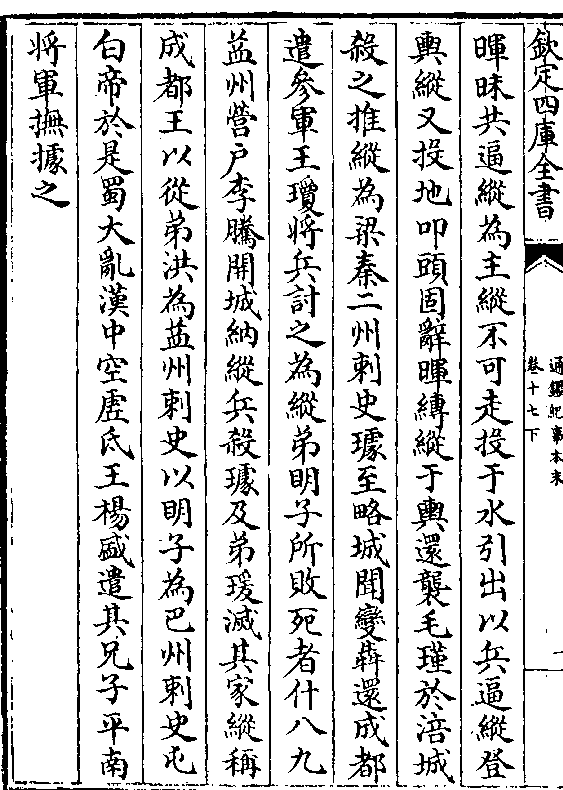 欽定四庫全書
通鑑紀事本末
卷十七下
一
暉昧共逼縱為主縱不可走投于水引出以兵逼縱登
輿縱又投地叩頭固辭暉縛縱于輿還襲毛瑾於涪城
殺之推縱為梁秦二州刺史璩至略城聞變犇還成都
遣參軍王瓊將兵討之為縱弟明子所敗死者什八九
益州營户李騰開城納縱兵殺璩及弟瑗滅其家縱稱
成都王以從弟洪為益州刺史以明子為巴州刺史屯
白帝於是蜀大亂漢中空虛氐王楊盛遣其兄子平南
將軍撫據之